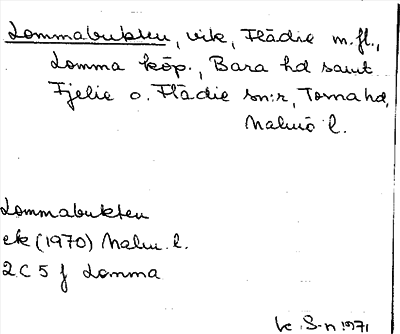 Lommabukten, vik, Flädie m.fl.,
Lomma köp., Bara hd samt
Fjelie o. Flädie sn:r, Torna hd,
Malmö l.
Lommabukten
ek (1970) Malm. l.
2C 5 f Lomma
1971